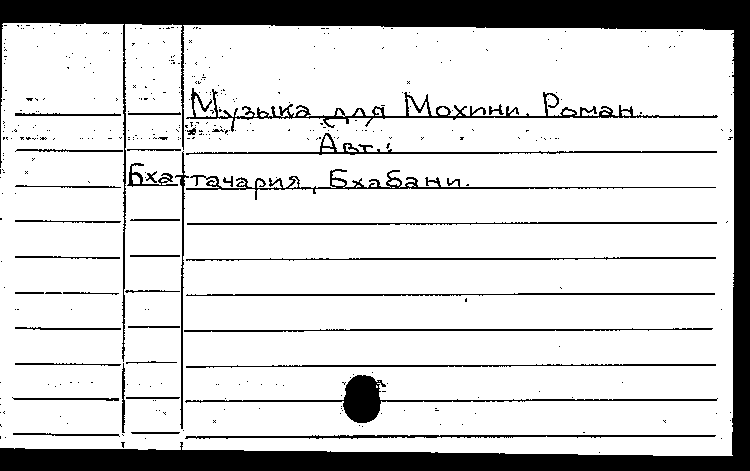 Музыка для Мохини. Роман.
Авт.:
Бхаттачария, Бхабани.